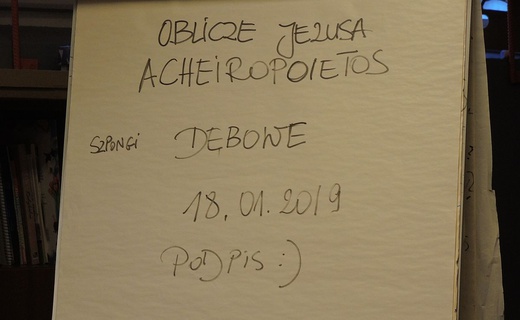 OBLICZE JEZUSA
ACHEIROPOIETOS
SZPONGI DĘBOWE
18.01.2019
PODPIS :)